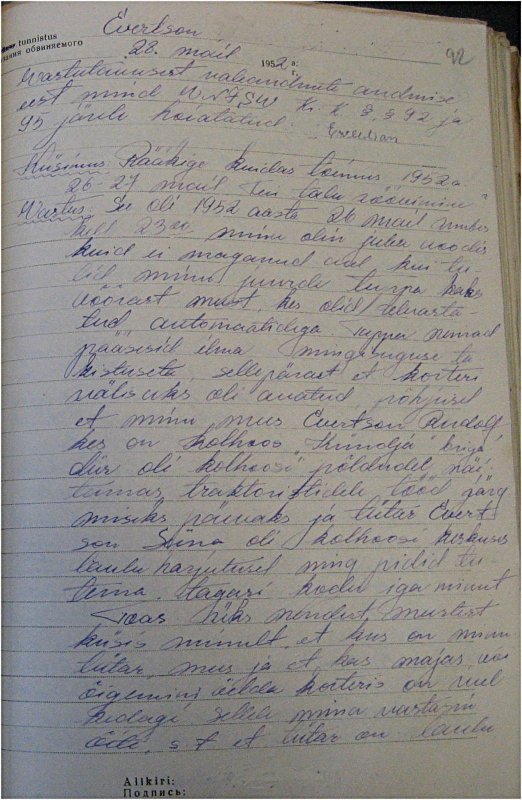 Evertson
tunnistus
28. mail 1952 a.
г.
92
Vastutamisest valeandmete andmise
eest mind VNFSV Kr. K. §, § 92 ja
95 järele hoiatatud. Evertson
Küsimus: Rääkige kuidas toimus 1952 a.
26-27 mail teie talu röövimine?
Vastus: See oli 1952 aasta 26 mail umbes
kell 23 00 mina olin juba voodis
kuid ei maganud veel kui tu-
lid minu juurde tuppa kaks
võõrast meest, kes olid relvasta-
tud automaatidega. Tuppa nemad
pääsesid ilma mingisuguse ta-
kistuseta, sellepärast et korteri
välisuks oli avatud põhjusel
et minu mees Evertson Rudolf,
kes on kolhoos "Kündja" briga-
dir oli kolhoosi põldudel näi-
tamas traktoristidele tööd järg-
miseks päevaks ja tütar Evert-
son Süna oli kolhoosi keskuses
laulu harjutusel ning pidid tu-
lema tagasi koju iga minut
üks nendest meestest
küsis minult, et kus on minu
tütar, mees ja et, kas majas, või
õigemini öelda korteris on veel
kedagi, sellele mina vastasin
õieti, s.t. et tütar on laulu
Allkiri:
Подпись: